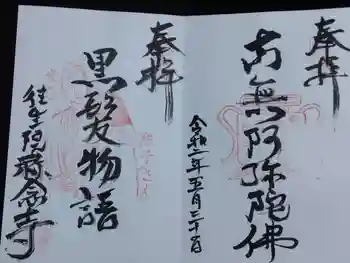 奉拝
南無阿弥陀佛
令和二年五月二十日
奉拝
黒髪物語
往生院職念寺